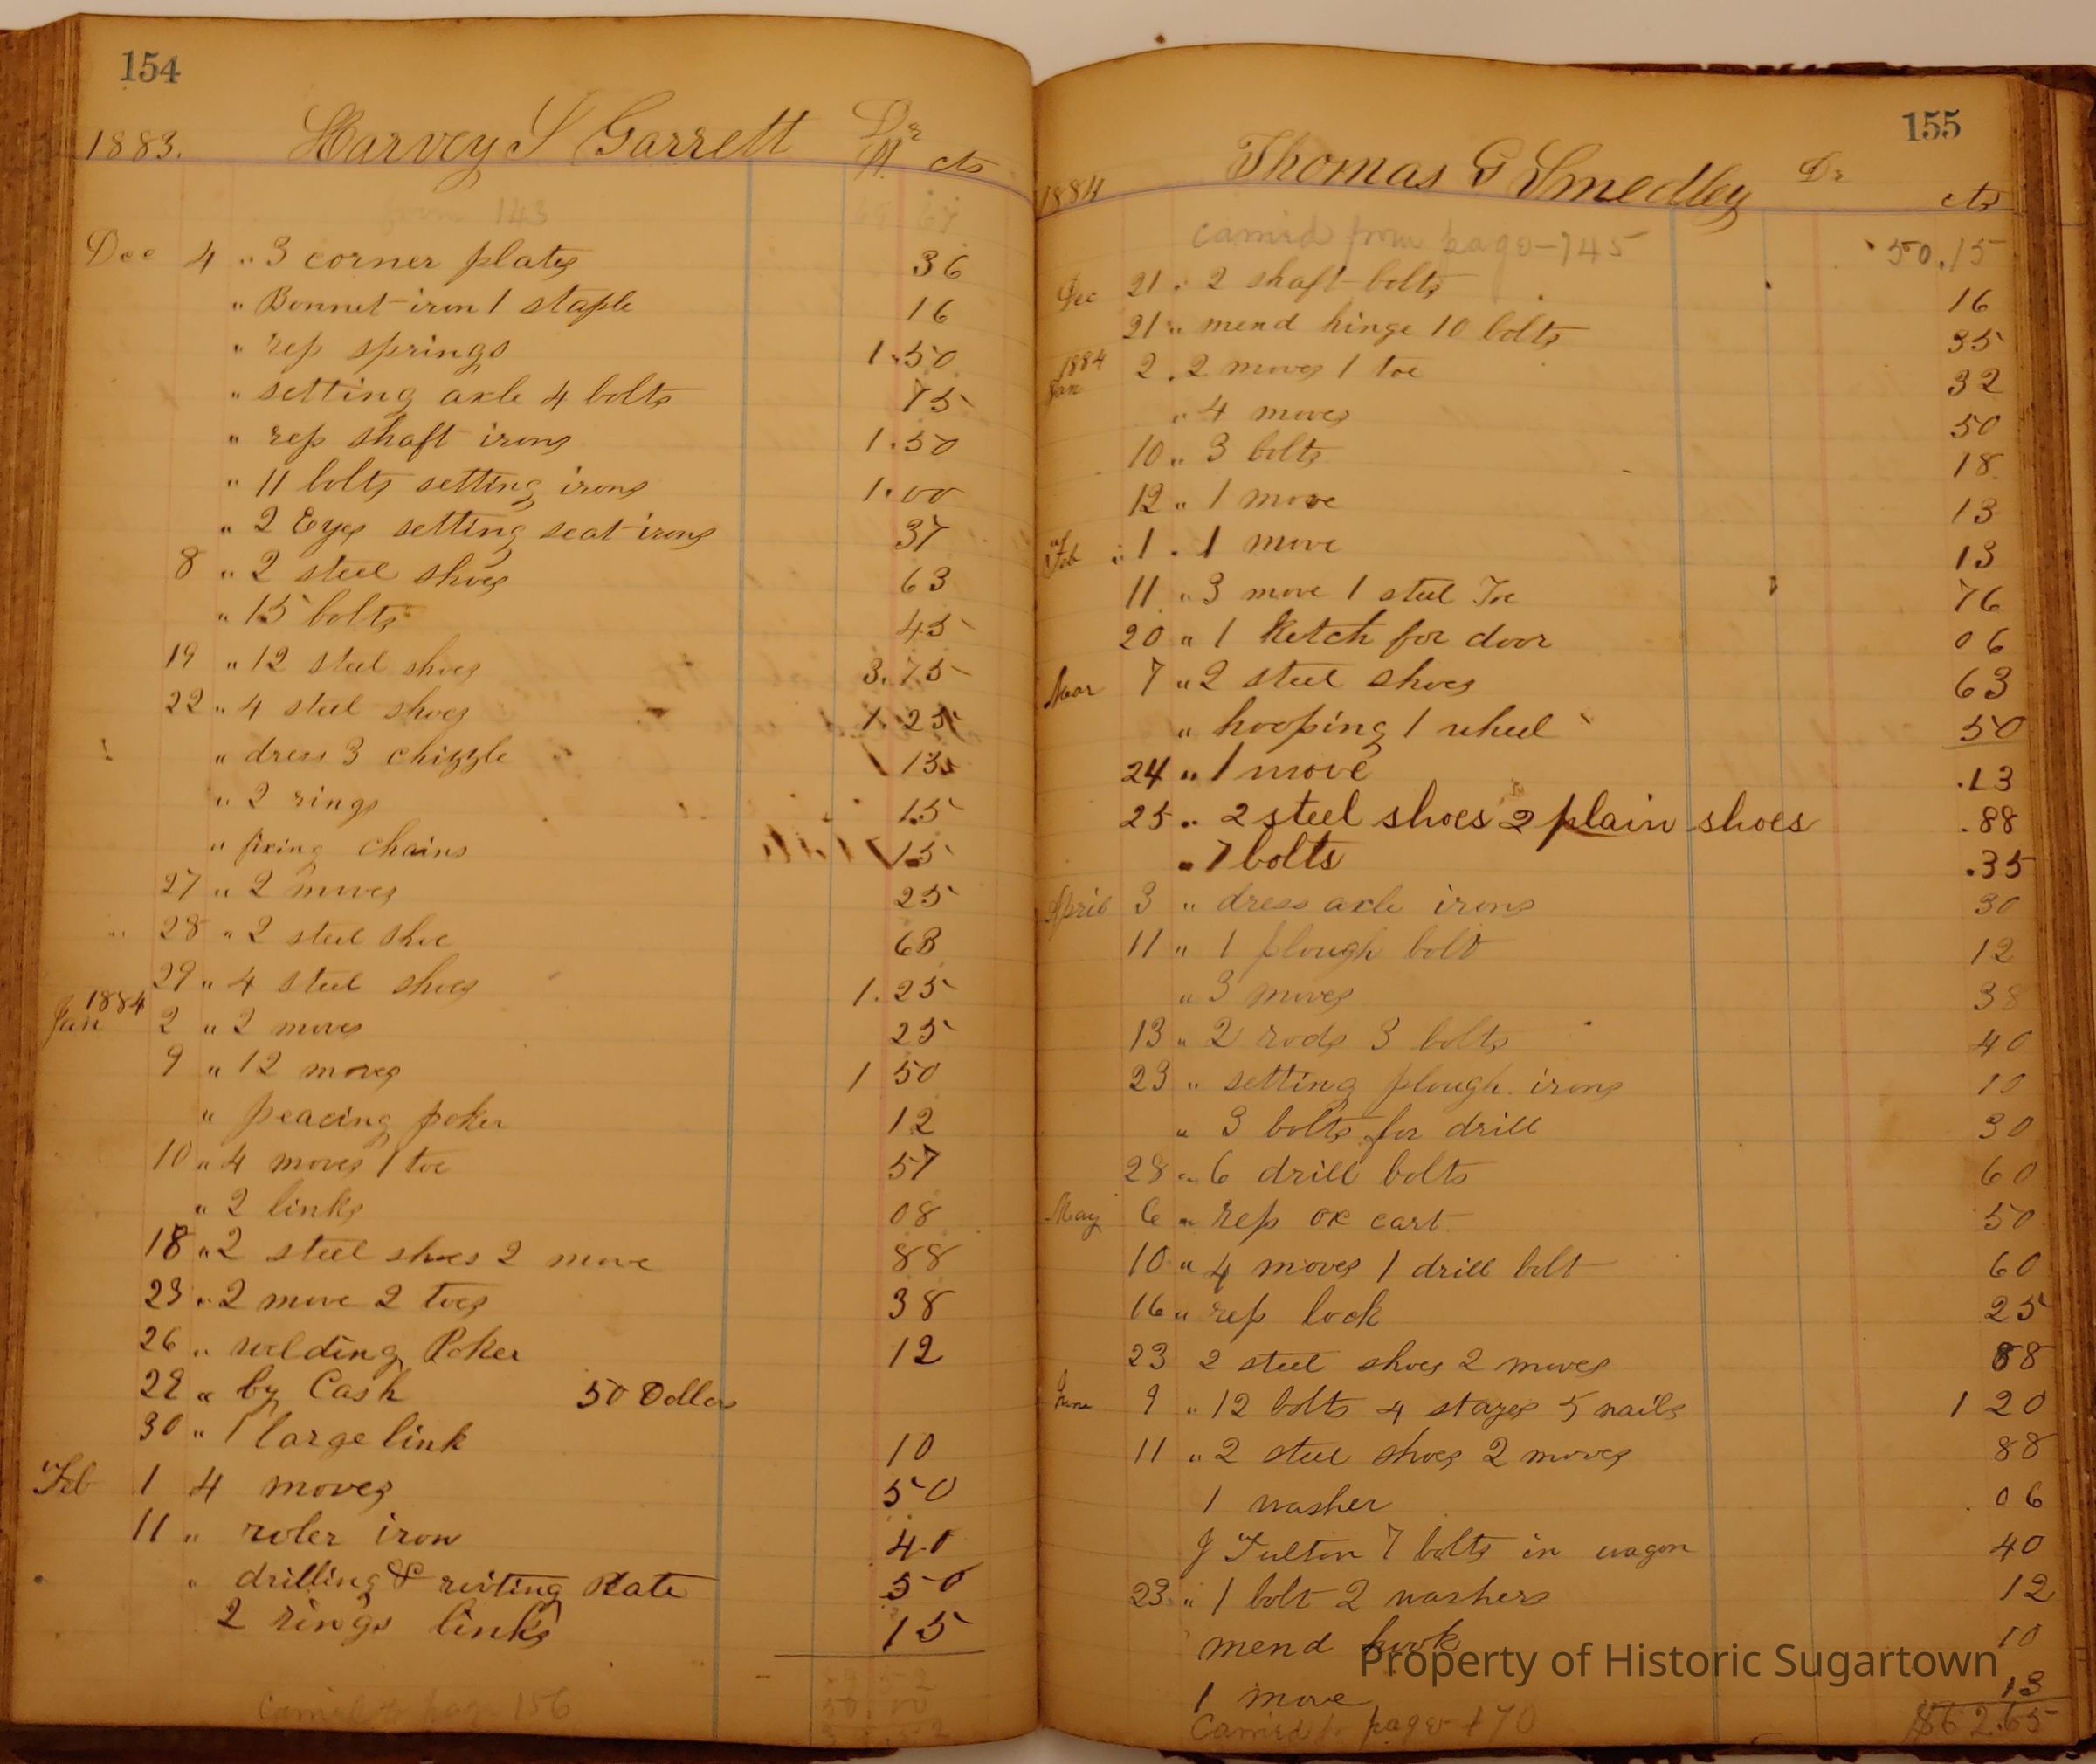 154
1883. Harvey S Garrett Dr
cts
from 143
Dec 4 " 3 corner plates 36
" Bonnet-iron 1 staple 16
" rep springs 1.50
" setting axle 4 bolts 75
" rep shaft irons 1.50
" 11 bolts setting irons 1.00
" 2 Eyes setting seat irons 37
8 " 2 steel shoes 63
" 15 bolts 45
19 " 12 steel shoes 3.75
22 " 4 steel shoes 1.25
" dress 3 chizzle 13
" 2 rings 15
" fixing chains 15
27 " 2 moves 25
28 " 2 steel shoe 63
29 " 4 steel shoes 1.25
1884
Jan 2 " 2 moves 25
9 " 12 moves 1 50
" peacing poker 12
10 " 4 moves 1 toe 57
" 2 links 08
18 " 2 steel shoes 2 move 88
23 " 2 move 2 toes 38
26 " welding Poker 12
29 " by Cash 50 Dollars
30 " 1 large link 10
Feb 1 4 moves 50
11 " roler iron 40
" drilling & riviting Plate 50
2 rings links 15
Carried to page 156
155
1884 Thomas G Smedley Dr
cts
carried from page 145 50.15
Dec 21 " 2 shaft bolts 16
21 " mend hinge 10 bolts 35
1884
Jan 2 " 2 moves 1 toe 32
" 4 moves 50
10 " 3 bolts 18
12 " 1 move 13
Feb " 1 " 1 move 13
11 " 3 move 1 steel Toe 76
20 " 1 Ketch for door 06
Mar 7 " 2 steel shoes 63
" hooping 1 wheel 50
24 " 1 move .13
25 " 2 steel shoes 2 plain shoes .88
" 7 bolts .35
April 3 " dress axle irons 30
11 " 1 plough bolt 12
" 3 moves 38
13 " 2 rods 3 bolts 40
23 " setting plough irons 10
" 3 bolts for drill 30
28 " 6 drill bolts 60
May 6 " rep ox cart 50
10 " 4 moves 1 drill bolt 60
16 " rep lock 25
23 2 steel shoes 2 moves 88
June 9 " 12 bolts 4 stayes 5 nails 1 20
11 " 2 steel shoes 2 moves 88
1 washer 06
J Fulton 7 bolts in wagon 40
23 " 1 bolt 2 washers 12
mend hook 10
1 move 13
Carried to page 170 $62.65
Property of Historic Sugartown